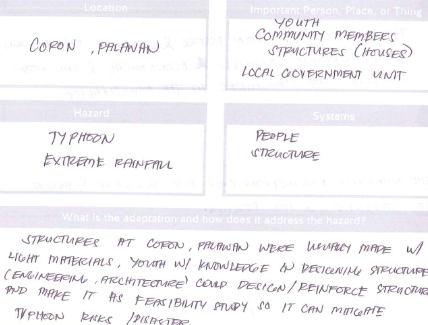 Location
CORON, PALAWAN
Important Person, Place, or Thing
YOUTH
COMMUNITY MEMBERS
STRUCTURES (HOUSES)
LOCAL GOVERNMENT UNIT
Hazard
TYPHOON
EXTREME RAINFALL
Systems
PEOPLE
STRUCTURE
What is the adaptation and how does it address the hazard?
STRUCTURES AT CORON, PALAWAN WERE USUALLY MADE W/
LIGHT MATERIALS, YOUTH W/ KNOWLEDGE IN DESIGNING STRUCTURE
(ENGINEERING, ARCHITECTURE) COULD DESIGN/REINFORCE STRUCTURE
AND MAKE IT AS FEASIBILITY STUDY SO IT CAN MITIGATE
TYPHOON RISKS /DISASTER